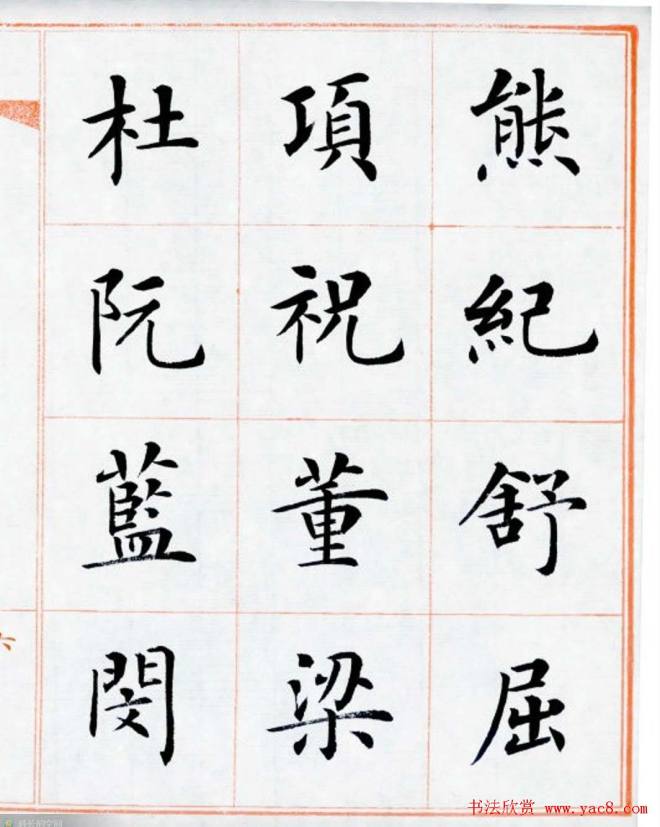 熊紀舒屈
項祝董梁
杜阮藍閔
六
书法欣赏 www.yac8.com